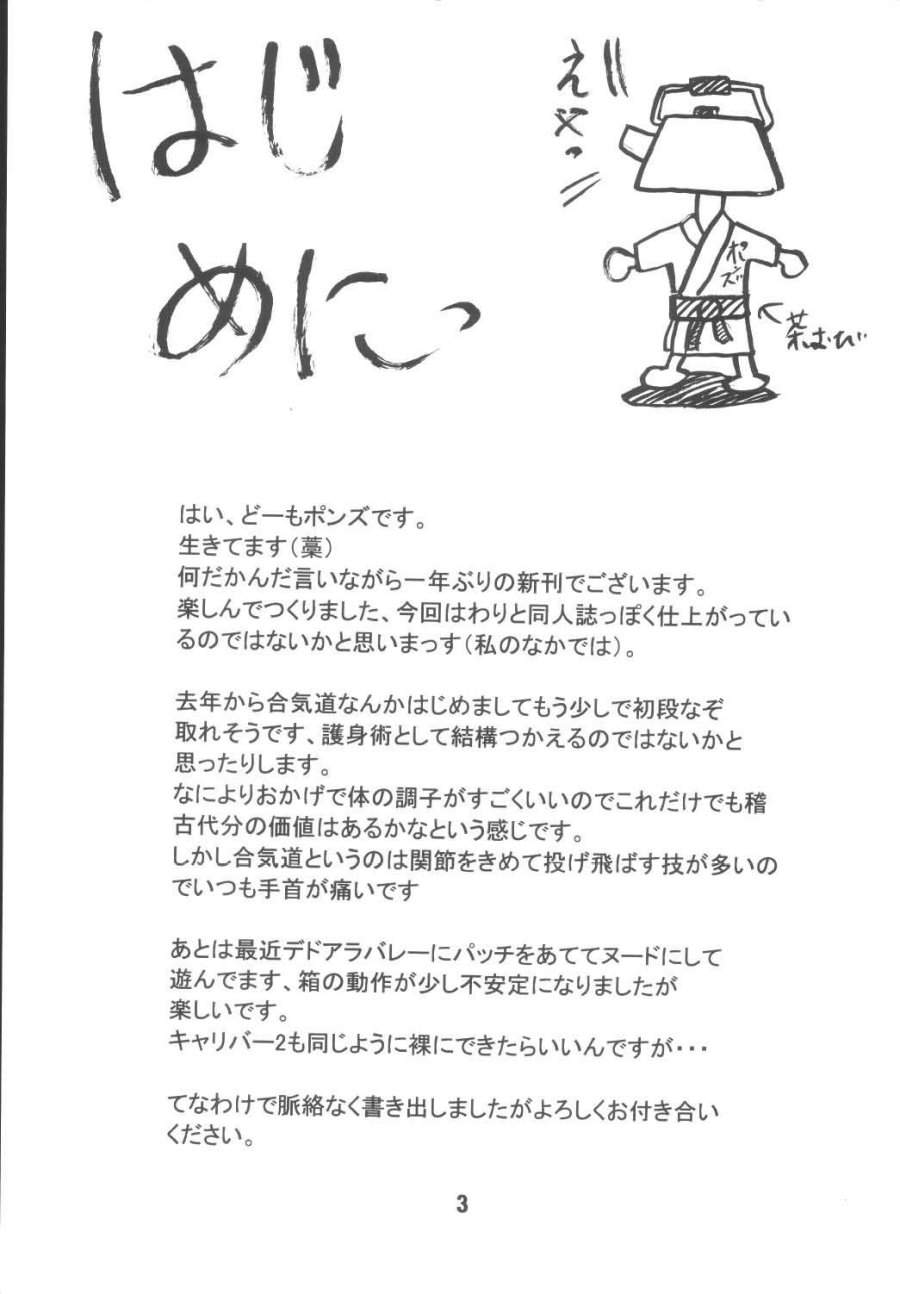 はじ
めにっ
えやっ
ポンズ
茶おび
はい、どーもポンズです。
生きてます（藁）
何だかんだ言いながら一年ぶりの新刊でございます。
楽しんでつくりました、今回はわりと同人誌っぽく仕上がってい
るのではないかと思いまっす（私のなかでは）。
去年から合気道なんかはじめましてもう少しで初段なぞ
取れそうです、護身術として結構つかえるのではないかと
思ったりします。
なによりおかげで体の調子がすごくいいのでこれだけでも稽
古代分の価値はあるかなという感じです。
しかし合気道というのは関節をきめて投げ飛ばす技が多いの
でいつも手首が痛いです
あとは最近デドアラバレーにパッチをあててヌードにして
遊んでます、箱の動作が少し不安定になりましたが
楽しいです。
キャリバー2も同じように裸にできたらいいんですが・・・
てなわけで脈絡なく書き出しましたがよろしくお付き合い
ください。
3